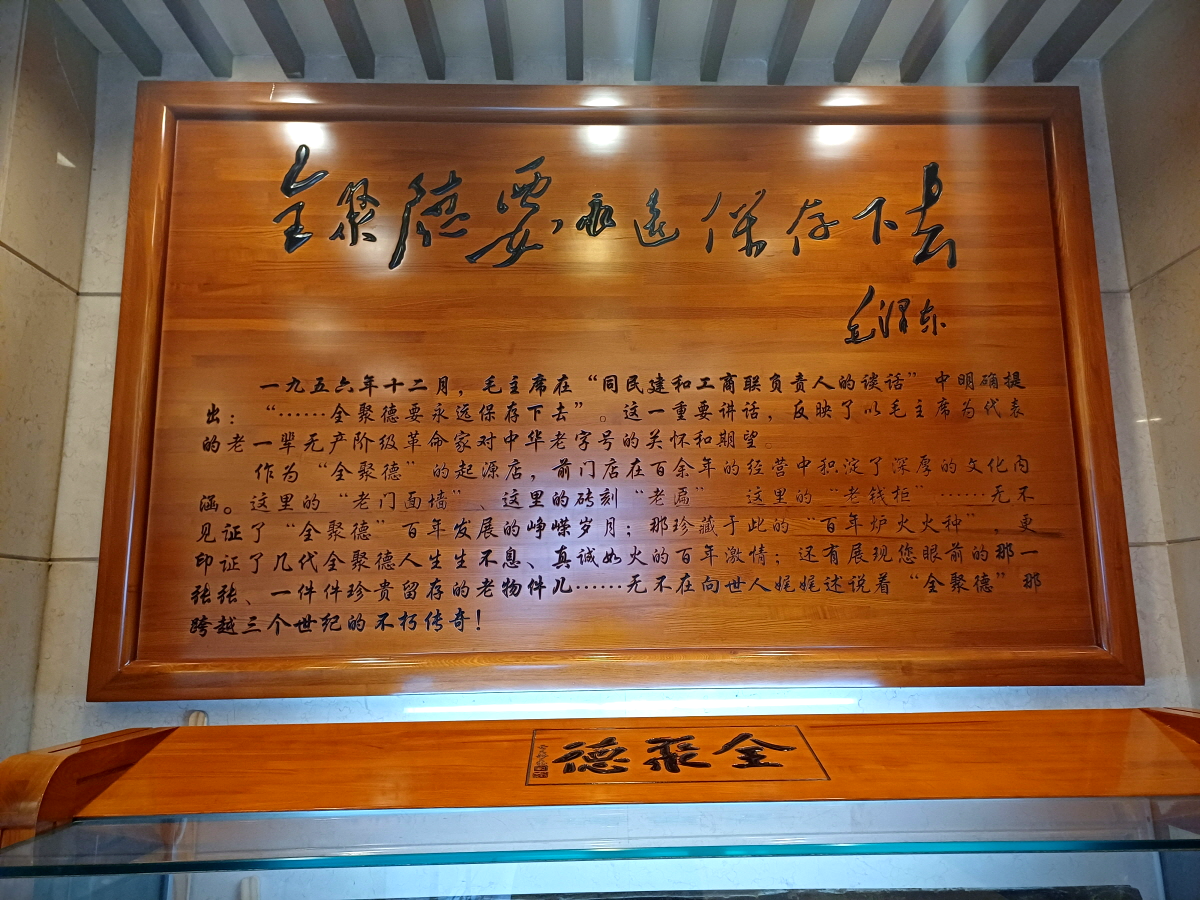 全聚德要永远保存下去
毛泽东
一九五六年十二月，毛主席在“同民建和工商联负责人的谈话”中明确提
出：“……全聚德要永远保存下去”。这一重要讲话，反映了以毛主席为代表
的老一辈无产阶级革命家对中华老字号的关怀和期望。
作为“全聚德”的起源店，前门店在百余年的经营中积淀了深厚的文化内
涵。这里的“老门面墙”、这里的砖刻“老匾” 这里的“老钱柜”……无不
见证了“全聚德”百年发展的峥嵘岁月；那珍藏于此的“百年炉火火种”，更
印证了几代全聚德人生生不息、真诚如火的百年激情；还有展现您眼前的那一
张张、一件件珍贵留存的老物件儿……无不在向世人娓娓述说着“全聚德”那
跨越三个世纪的不朽传奇！
全聚德